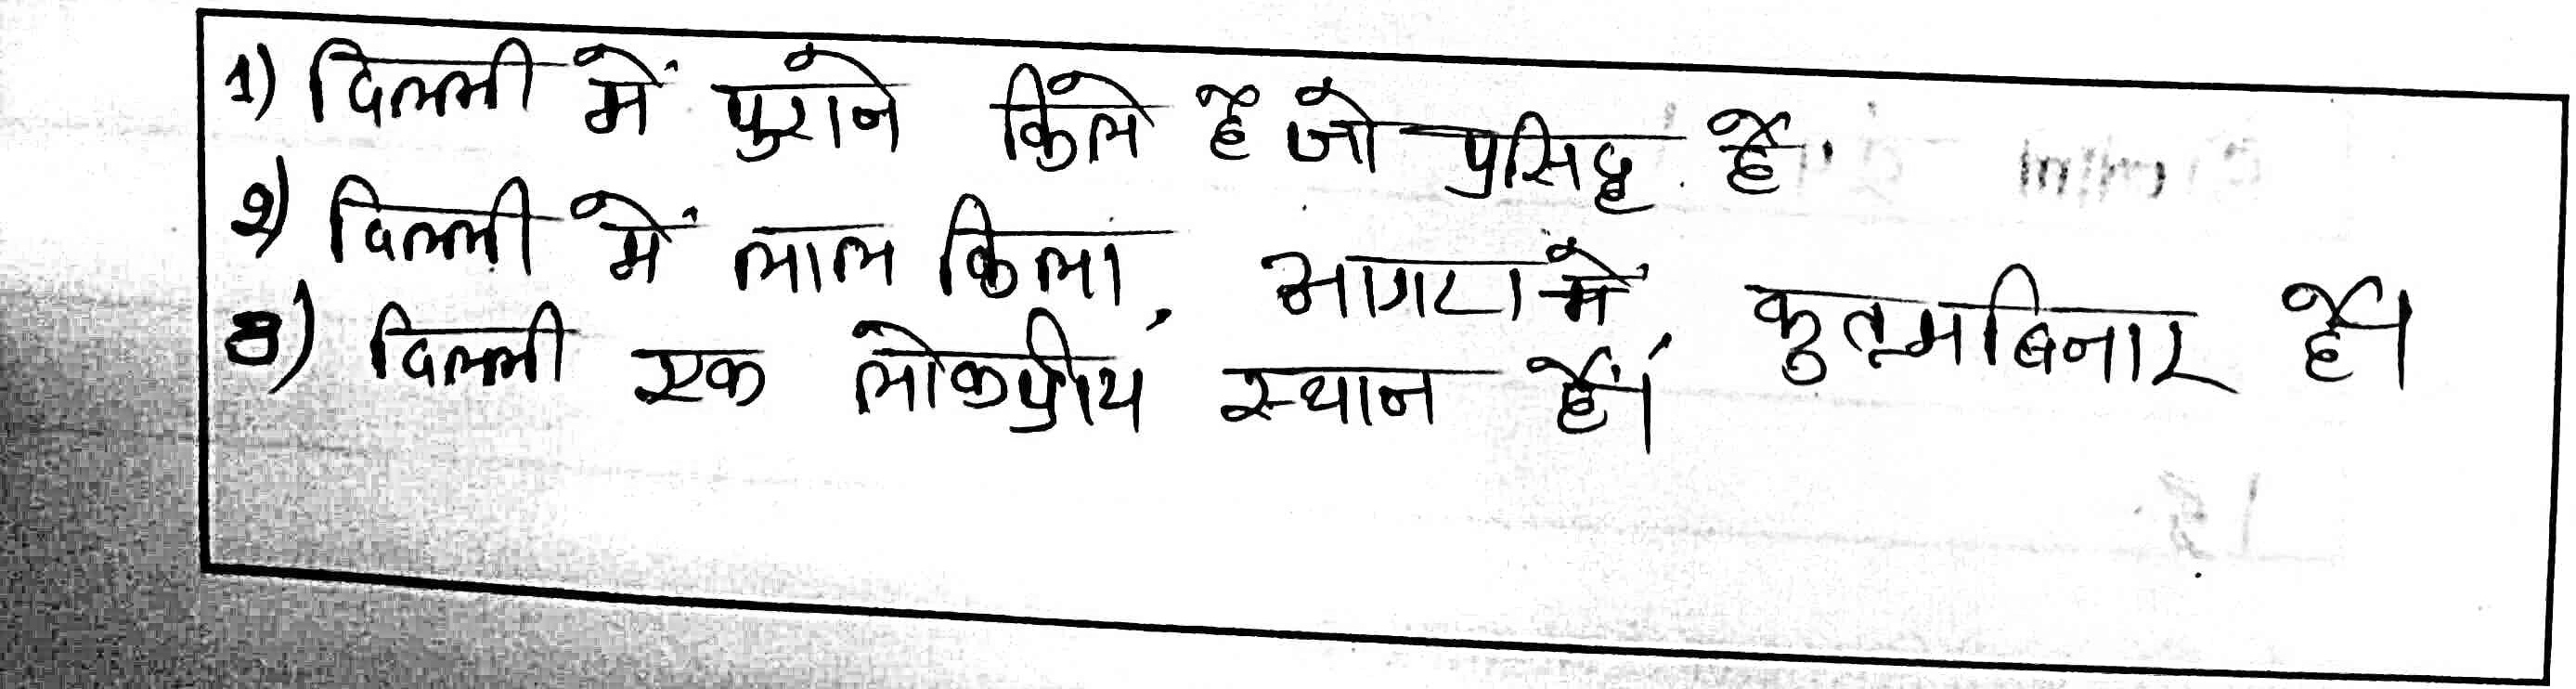 1) दिल्ली में पुराने किले है जो प्रसिद्ध है.
2) दिल्ली में लाल किला, आगरा में कुतूमबिनार है।
3) दिल्ली एक लोकप्रीय स्थान हैं।